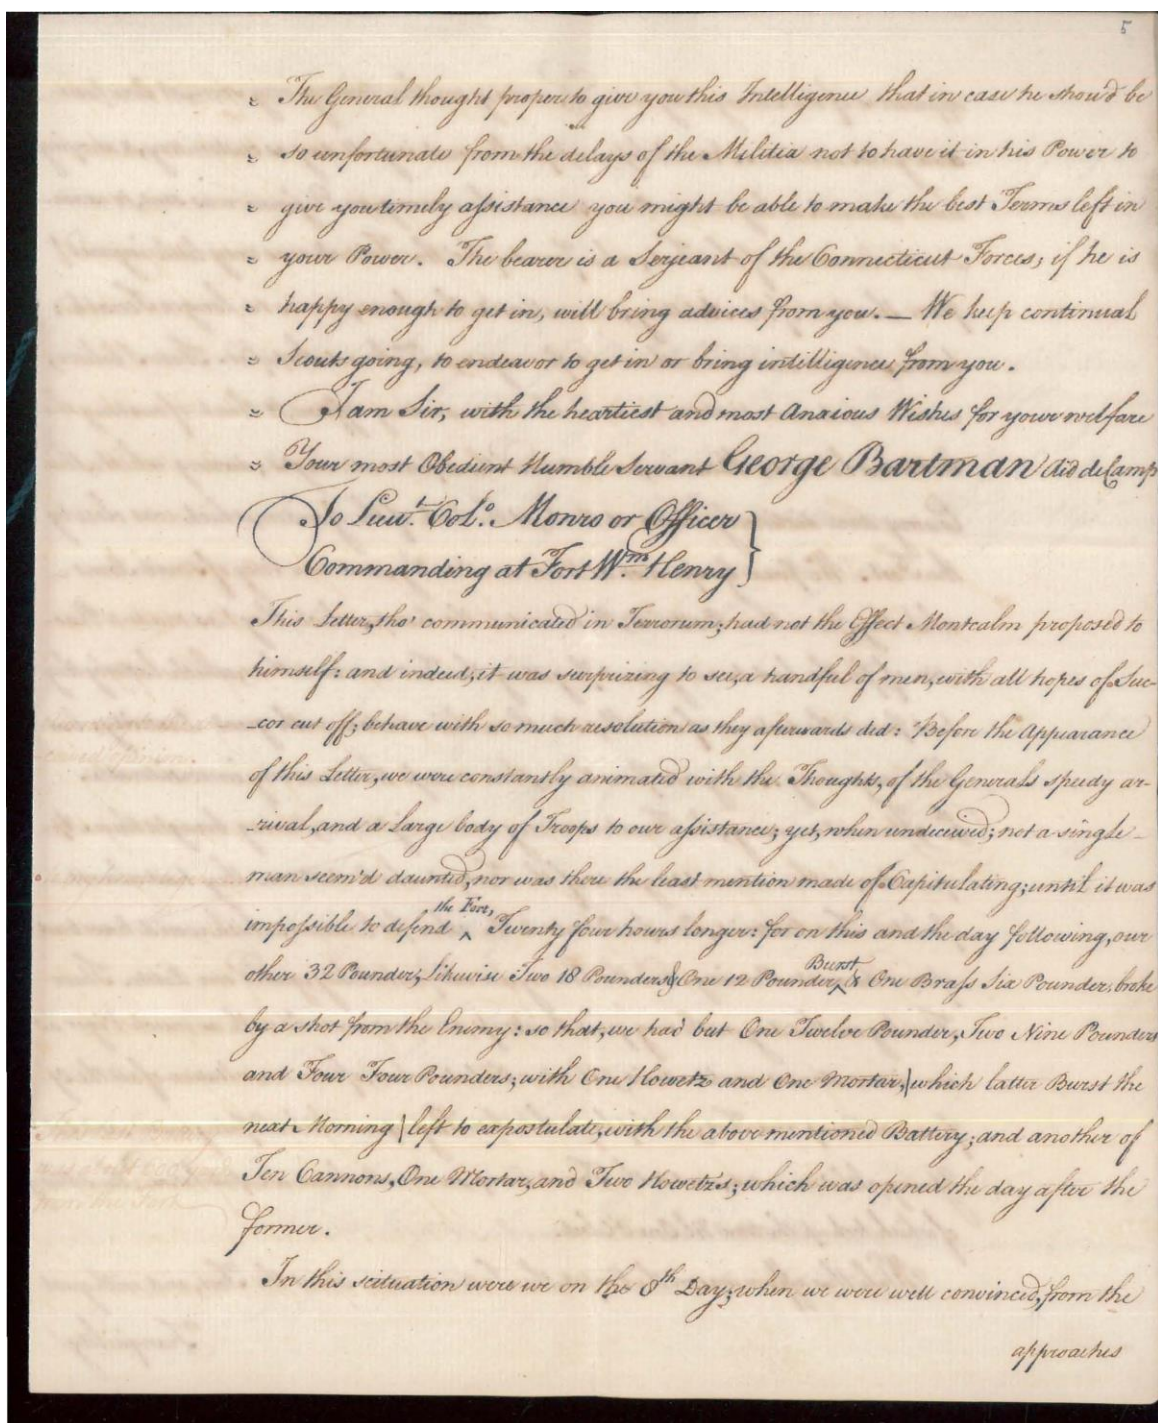 5
" The General thought proper to give you this Intelligence that in case he shou'd be
" so unfortunate from the delays of the Militia not to have it in his Power to
" give you timely assistance you might be able to make the best Terms left in
" your Power. The bearer is a Serjeant of the Connecticut Forces; if he is
" happy enough to get in, will bring advices from you. — We keep continual
" Scouts going, to endeavor to get in or bring intilligence from you.
" I am Sir, with the heartiest and most Anxious Wishes for your welfare
" Your most Obedient Humble Servant George Bartman Aid de Camp
To Lieut. Colo. Monro or Officer
Commanding at Fort Wm. Henry
This Letter, tho' communicated in Terrorum; had not the Effect Montcalm proposed to
himself: and indeed, it was surprizing to see, a handful of men, with all hopes of Suc-
-cor cut off; behave with so much resolution as they afterwards did: Before the Appearance
of this Letter, we were constantly animated with the Thoughts, of the Generals speedy ar-
-rival, and a Large body of Troops to our assistance; yet, when undeceived; not a single
man seem'd daunted, nor was there the least mention made of Capitulating; until it was
impossible to defend ^ the Fort, Twenty four hours longer: for on this and the day following, our
other 32 Pounder; Likewise Two 18 Pounders & One 12 Pounder ^ Burst & One Brass Six Pounder, broke
by a shot from the Enemy: so that, we had but One Twelve Pounder, Two Nine Pounders
and Four Four Pounders; with One Howetz and One Mortar, \ which latter Burst the
next Morning \ left to expostulate, with the above mentioned Battery; and another of
Ten Cannons, One Mortar, and Two Howetz's; which was opened the day after the
former.
In this scituation were we on the 8th Day; when we were well convinced, from the
approaches